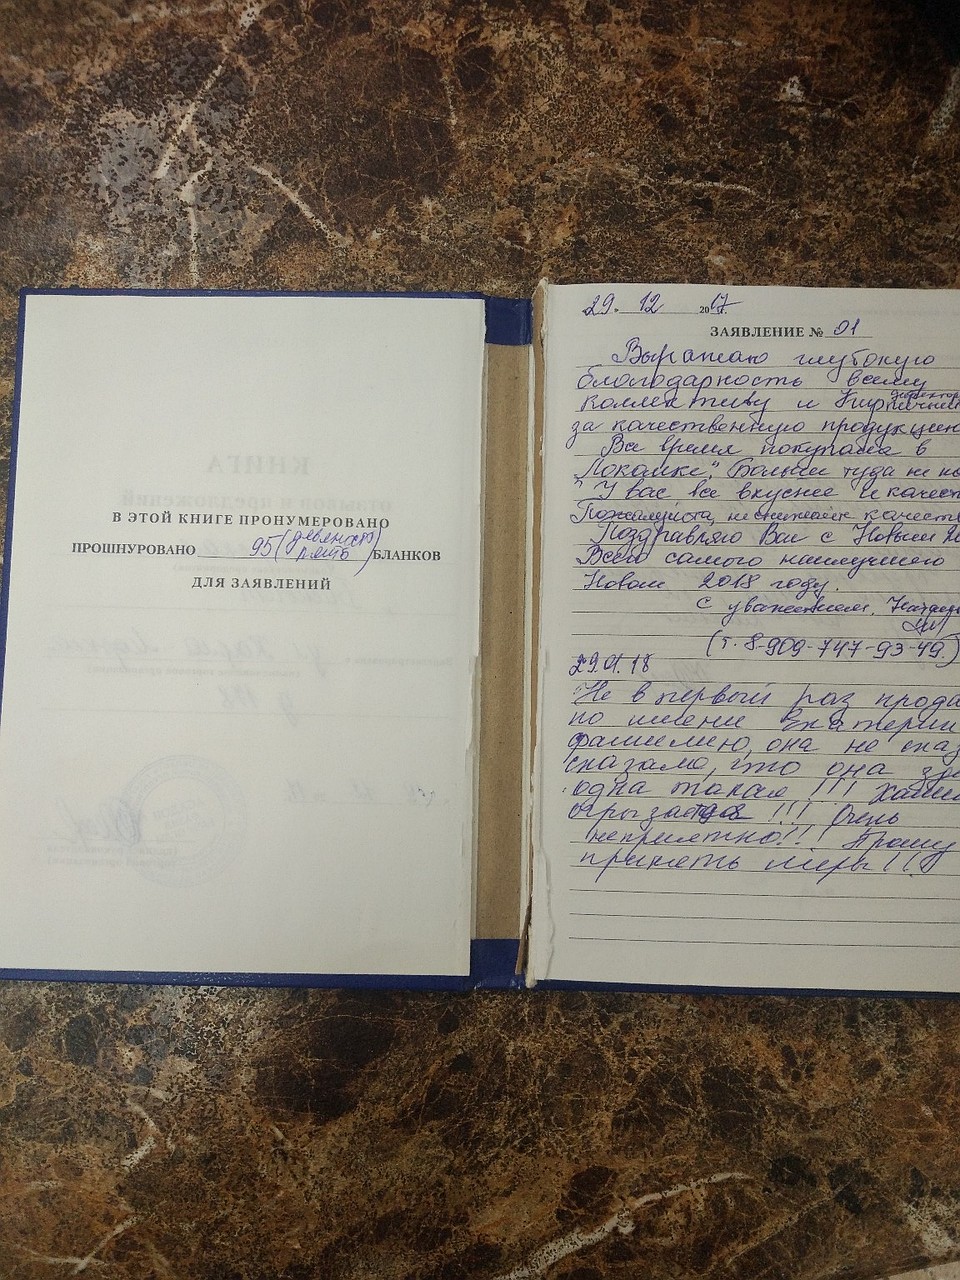 В ЭТОЙ КНИГЕ ПРОНУМЕРОВАНО
ПРОШНУРОВАНО 95 (девяносто пять) БЛАНКОВ
ДЛЯ ЗАЯВЛЕНИЙ
29. 12 2017 г.
ЗАЯВЛЕНИЕ № 01
Выражаю глубокую
благодарность всему
коллективу и директору
за качественную продукцию
Все время покупала в
"Локомке". Больше туда не
У вас все вкуснее и качест
Пожалуйста, не снижайте качеств
Поздравляю Вас с Новым
Всего самого наилучшего
Новом 2018 году.
С уважением,
(т. 8-909-747-93-49)
29.01.18
Не в первый раз прода
по имени Екатерин
фамилию, она не сказ
сказала, что она зде
одна такая !!! Хами
огрызается !!! Очень
неприятно!!! Прошу
принять меры!!!
КНИГА
отзывов и предложений